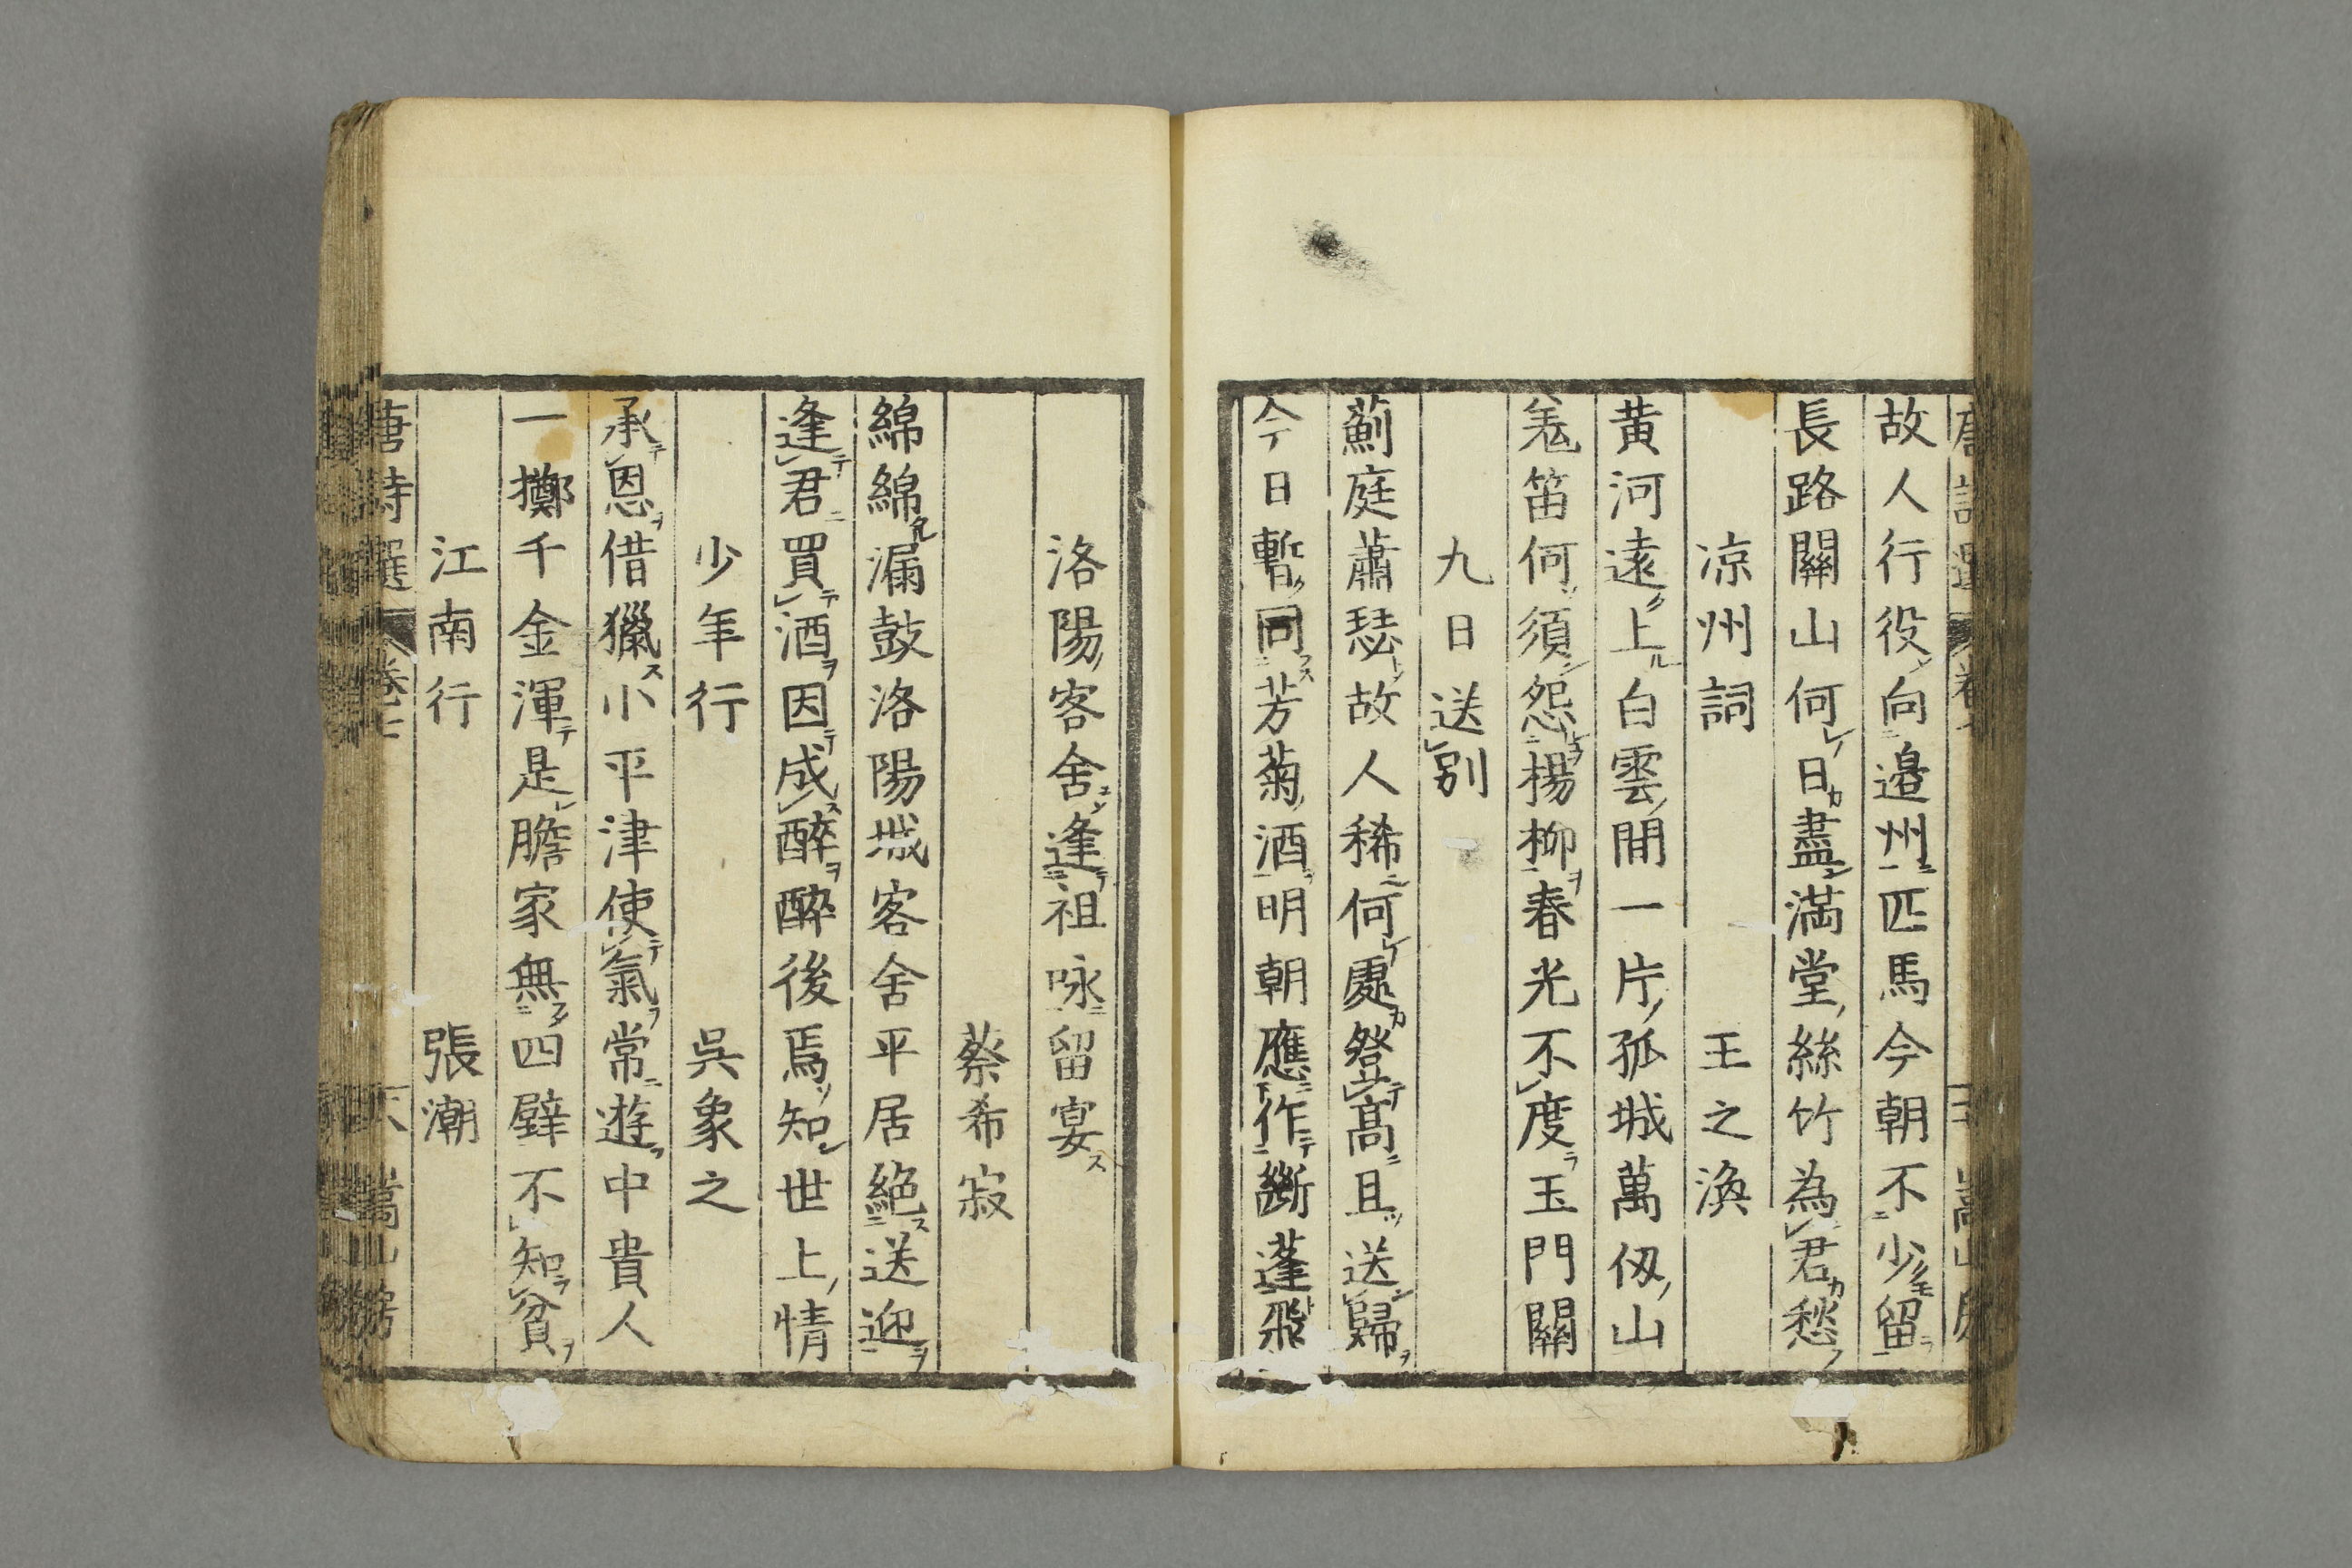 故人行役向邉州匹馬今朝不少留
長路關山何日盡滿堂絲竹為君愁
涼州詞 王之渙
黄河遠上白雲間一片孤城萬仭山
羗笛何須怨楊柳春光不度玉門關
九日送别
薊庭蕭瑟故人稀何處登髙且送歸
今日暫同芳菊酒明朝應作斷蓬飛
洛陽客舍逢祖咏留宴
蔡希寂
綿綿漏鼓洛陽城客舍平居絕送迎
逢君買酒因成醉醉後焉知世上情
少年行 吳象之
承恩借獵小平津使氣常遊中貴人
一擲千金渾是膽家無四壁不知貧
江南行 張潮
唐詩選 卷七 嵩山房